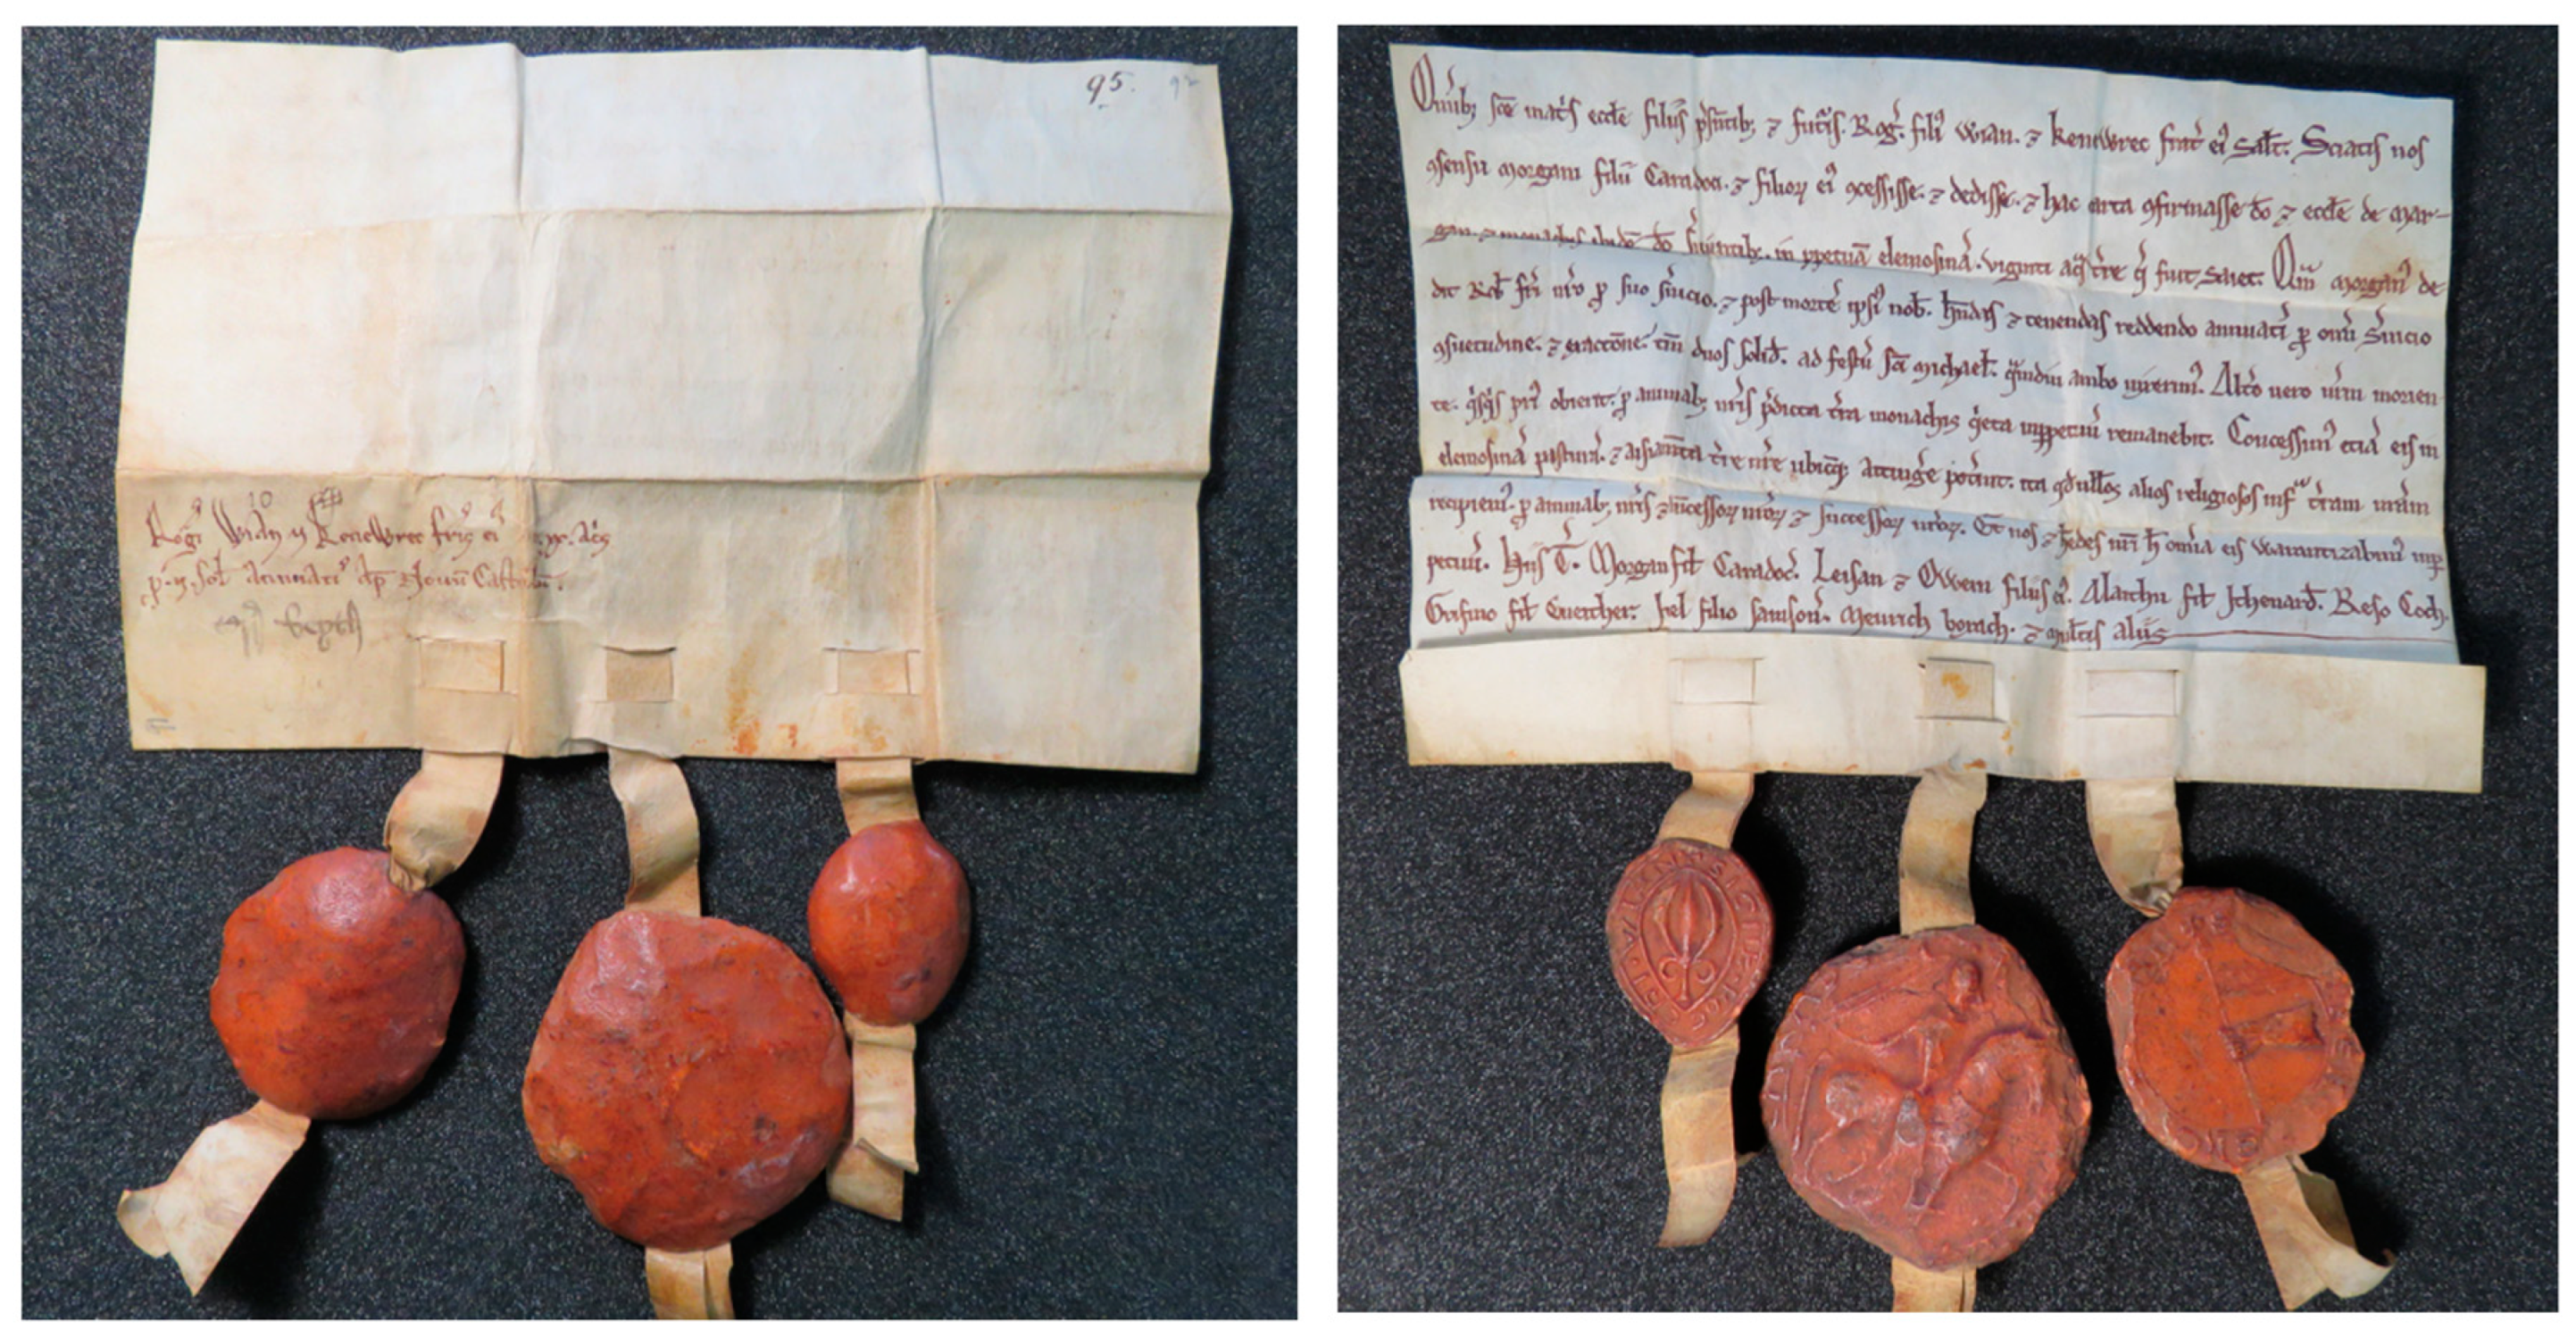 95. 92
10
Rog̃i Wian ⁊ Kenewrec fr̃is ei xx. ac̃s
p̱. ij. sol̃ annuati ap̱ Nouũ Castellũ.
Om̃ib; sc̃e mat̃s eccl̃e filiis p̃sentib; ⁊ fut̃is. Rog̃. fili⁹ Wian. ⁊ kenewrec frat̃ ei⁹ sal̃t. Sciatis nos
ꝯsensu Morgani filii Caradoci. ⁊ filioꝝ ei⁹ ꝯcessisse. ⁊ dedisse. ⁊ hac carta ꝯfirmasse d̃o ⁊ eccl̃e de Mar-
gan. ⁊ monachis ibid̃ d̃o s̃uientib;. in p̱petuã elemosinã. viginti ac̃s t̃re q̃ fuit saiet. Q̃m Morgan⁹ de
dit Rob̃ fr̃i nr̃o p̱ suo s̃uicio. ⁊ post mortẽ ipsi⁹ nob̃. h̃ndas ⁊ tenendas reddendo annuatĩ p̱ om̃i s̃uicio
ꝯsuetudine. ⁊ exaccõne. tm̃ duos solid̃. ad festũ sc̃i Michael̃. q̃mdiu ambo vixerim⁹. Alt̃o uero nr̃m morien
te. q̃sq̃s pri⁹ obierit. p̱ animab; nr̃is p̃dicta t̃ra monachis q̃eta inp̱petuũ remanebit. Concessim⁹ eciã eis in
elemosinã pasturã. ⁊ aisiam̃ta t̃re nr̃e ubicũq; attinge pot̃int. ita qd̃ nullos alios religiosos inf̃ t̃ram nr̃am
recipiem⁹. p̱ animab; nr̃is ⁊ ãncessoꝝ nr̃oꝝ ⁊ successoꝝ nr̃oꝝ. Et nos ⁊ h̃edes nr̃i h̃ om̃ia eis warantizabim⁹ inp̱
petuũ. Hiis T̃. Morgan fil̃ Caradoc̃. Leisan ⁊ Owein filiis ei⁹. Alaithu fil̃ Ithenard̃. Reso Coch.
Grifino fil̃ Cnaitho. hel filio Samsoñ. Meurich borach. ⁊ mul̃tis aliis